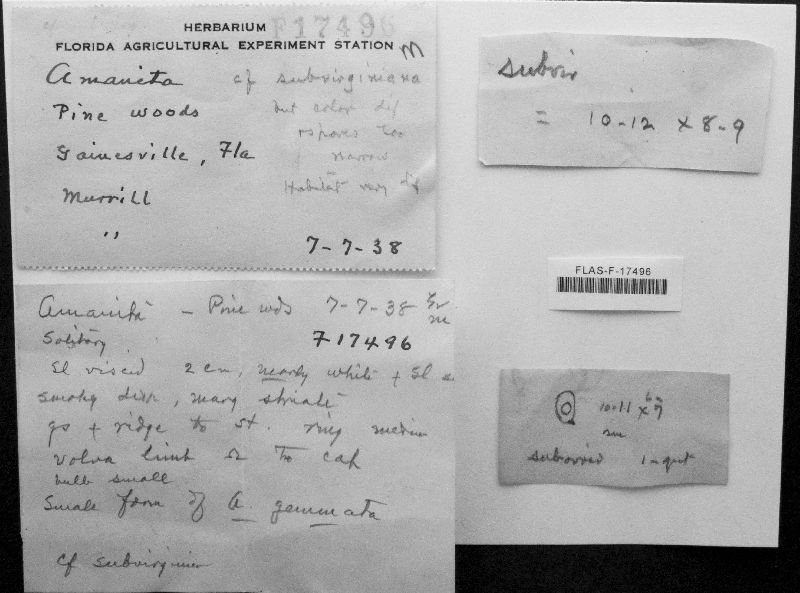 F17496
HERBARIUM
FLORIDA AGRICULTURAL EXPERIMENT STATION M
Amanita cf subvirginiana
Pine woods but color dif
spores too
Gainesville, Fla narrow
Murrill Habitat very dif
"
7-7-38
Subvir
= 10-12 x 8-9
FLAS-F-17496
Amanita - Pine wds 7-7-38
Solitary F17496
Sl viscid 2 cm, nearly white + sl
smoky disk, marg striate
gs + ridge to st. ring median
volva limb to cap
bulb small
Small form of A. gemmata
cf subvirginian
10-11 x 6-7
subovoid 1-gut